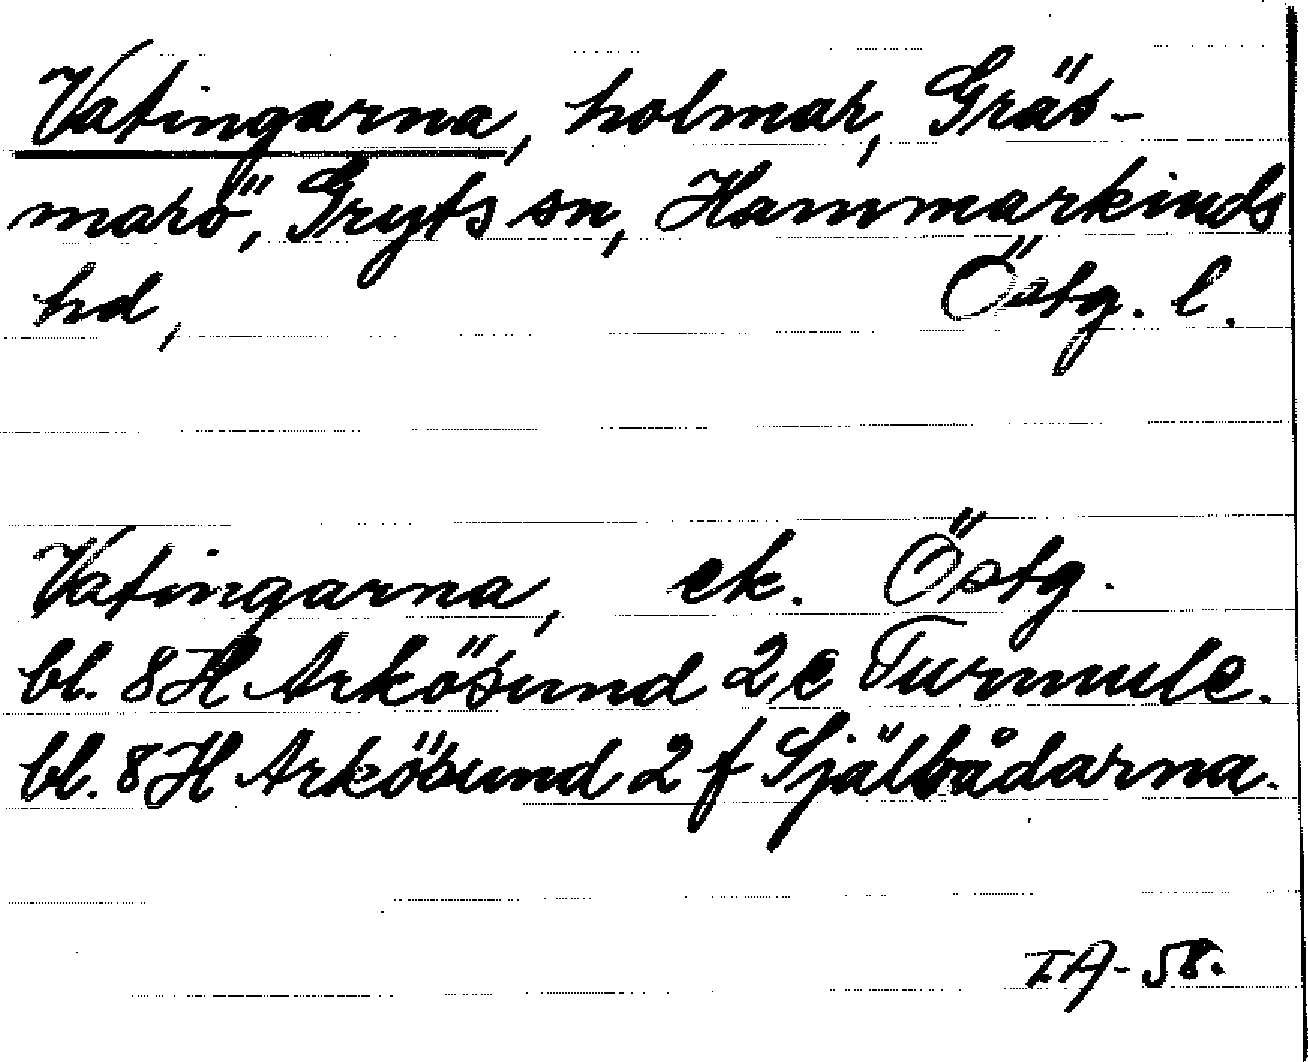 Vatingarna, holmar, Gräs-
marö, Gryts sn, Hammarkinds
hd, Östg. l.
Vatingarna, ek. Östg.
bl. 8H Arkösund 2e Turmule.
bl. 8H Arkösund 2f Själbådarna.
IA-58.